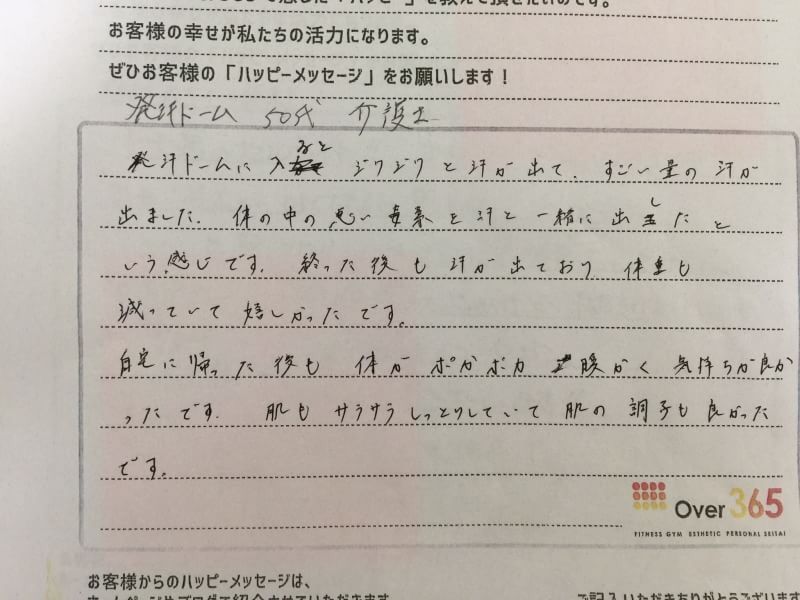 お客様の幸せが私たちの活力になります。
ぜひお客様の「ハッピーメッセージ」をお願いします!
発汗ドーム 50代 介護士
発汗ドームに入ると ジワジワと汗が出て、すごい量の汗が
出ました。体の中の悪い毒素を汗と一緒に出したと
いう感じです。終った後も汗が出ており 体重も
減っていて嬉しかったです。
自宅に帰った後も 体がポカポカ 暖かく 気持ちが良か
ったです。肌もサラサラしっとりしていて肌の調子も良かった
です。
Over 365
FITNESS GYM ESTHETIC PERSONAL SEITAI
お客様からのハッピーメッセージは、
ホームページやブログで紹介させていただきます
ご記入いただきありがとうございます